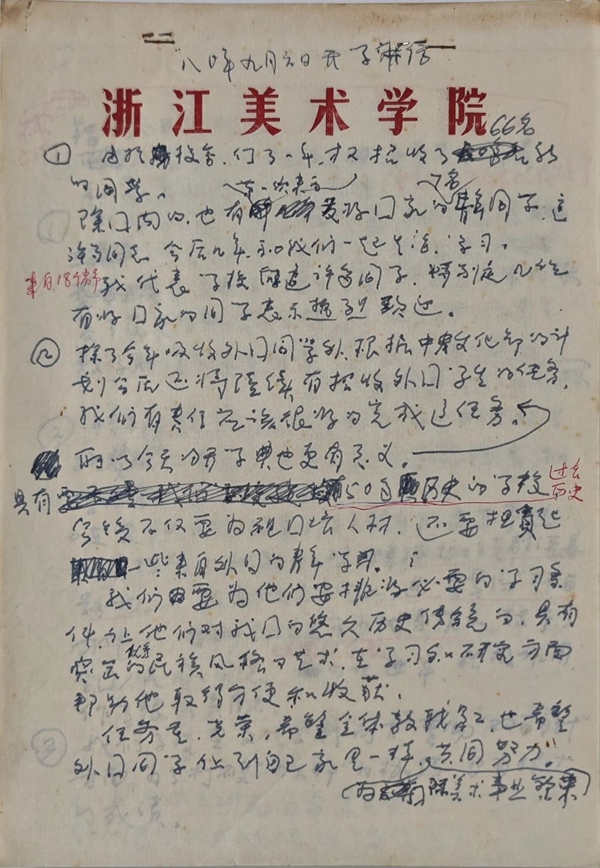 八〇年九月六日开学讲话
浙江美术学院
66名
① 由于校舍,们了一年,只招收了
的同学。 第一次来自 7名
除国内的,也有友好国家的青年同学,这
许多同志今后几年和我们一起生活、学习。
来自18个省市
我代表学校欢迎许多同学,特别是几位
友好国家的同学表示热烈欢迎。
② 除了今年吸收外国同学外,根据中央文化部的计
划今后还将陆续有招收外国学生的任务,
我们有责任应该很好的完成这任务。
所以今天的开学典也更有意义。
具有 50多年历史的学校 过去历史
今后不仅要为祖国培人材,还要担负起
一些来自外国的青年学员。
我们要为他们安排好必要的学习条
件,让他们对我国的悠久历史传统的,具有
突出的民族风格的艺术,在学习和研究方面
都为他取得方便和收获。
③ 任务是光荣,希望全体教职工,也希望
外国同学住到自己家里一样,共同努力。
为 美术事业繁荣